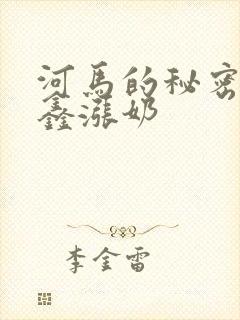 河马的秘密
鑫涨奶
李金雷